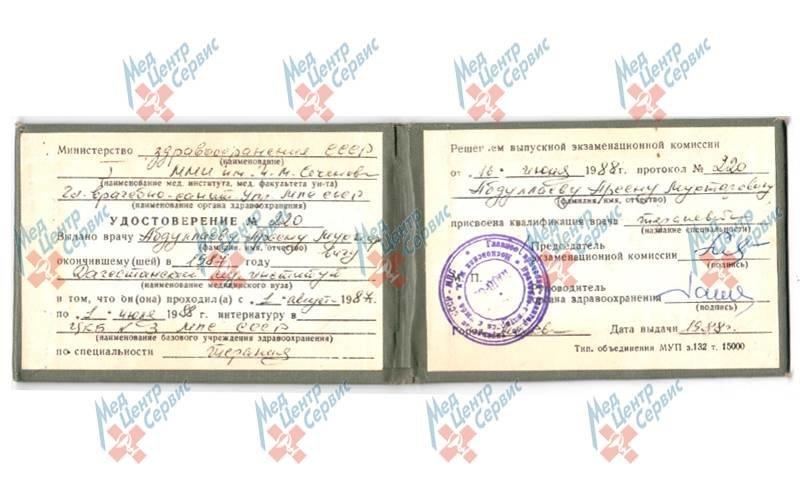 Мед Центр Сервис
Министерство здравоохранения СССР
(наименование)
ММИ им. И.М. Сеченова
(наименование мед. института, мед. факультета ун-та)
Гл. врачебно-санит. упр. МПС СССР
(наименование органа здравоохранения)
УДОСТОВЕРЕНИЕ № 220
Выдано врачу Абдуллаеву Арсену Мухтаровичу
(фамилия, имя, отчество)
окончившему(шей) в 1987 году
Дагестанский мед. институт
(наименование медицинского вуза)
в том, что он(она) проходил(а) с 1 август 1987.
по 1 июля 1988 г. интернатуру в
ЦКБ № 3 МПС СССР
(наименование базового учреждения здравоохранения)
по специальности терапия
Решением выпускной экзаменационной комиссии
от 16 июня 1988г. протокол № 220
Абдуллаеву Арсену Мухтаровичу
(фамилия, имя, отчество)
присвоена квалификация врача
(название специальности)
Председатель
экзаменационной комиссии
(подпись)
М. П.
Руководитель
органа здравоохранения
(подпись)
Город Дата выдачи 1988г.
Тип. объединения МУП з.132 т. 15000